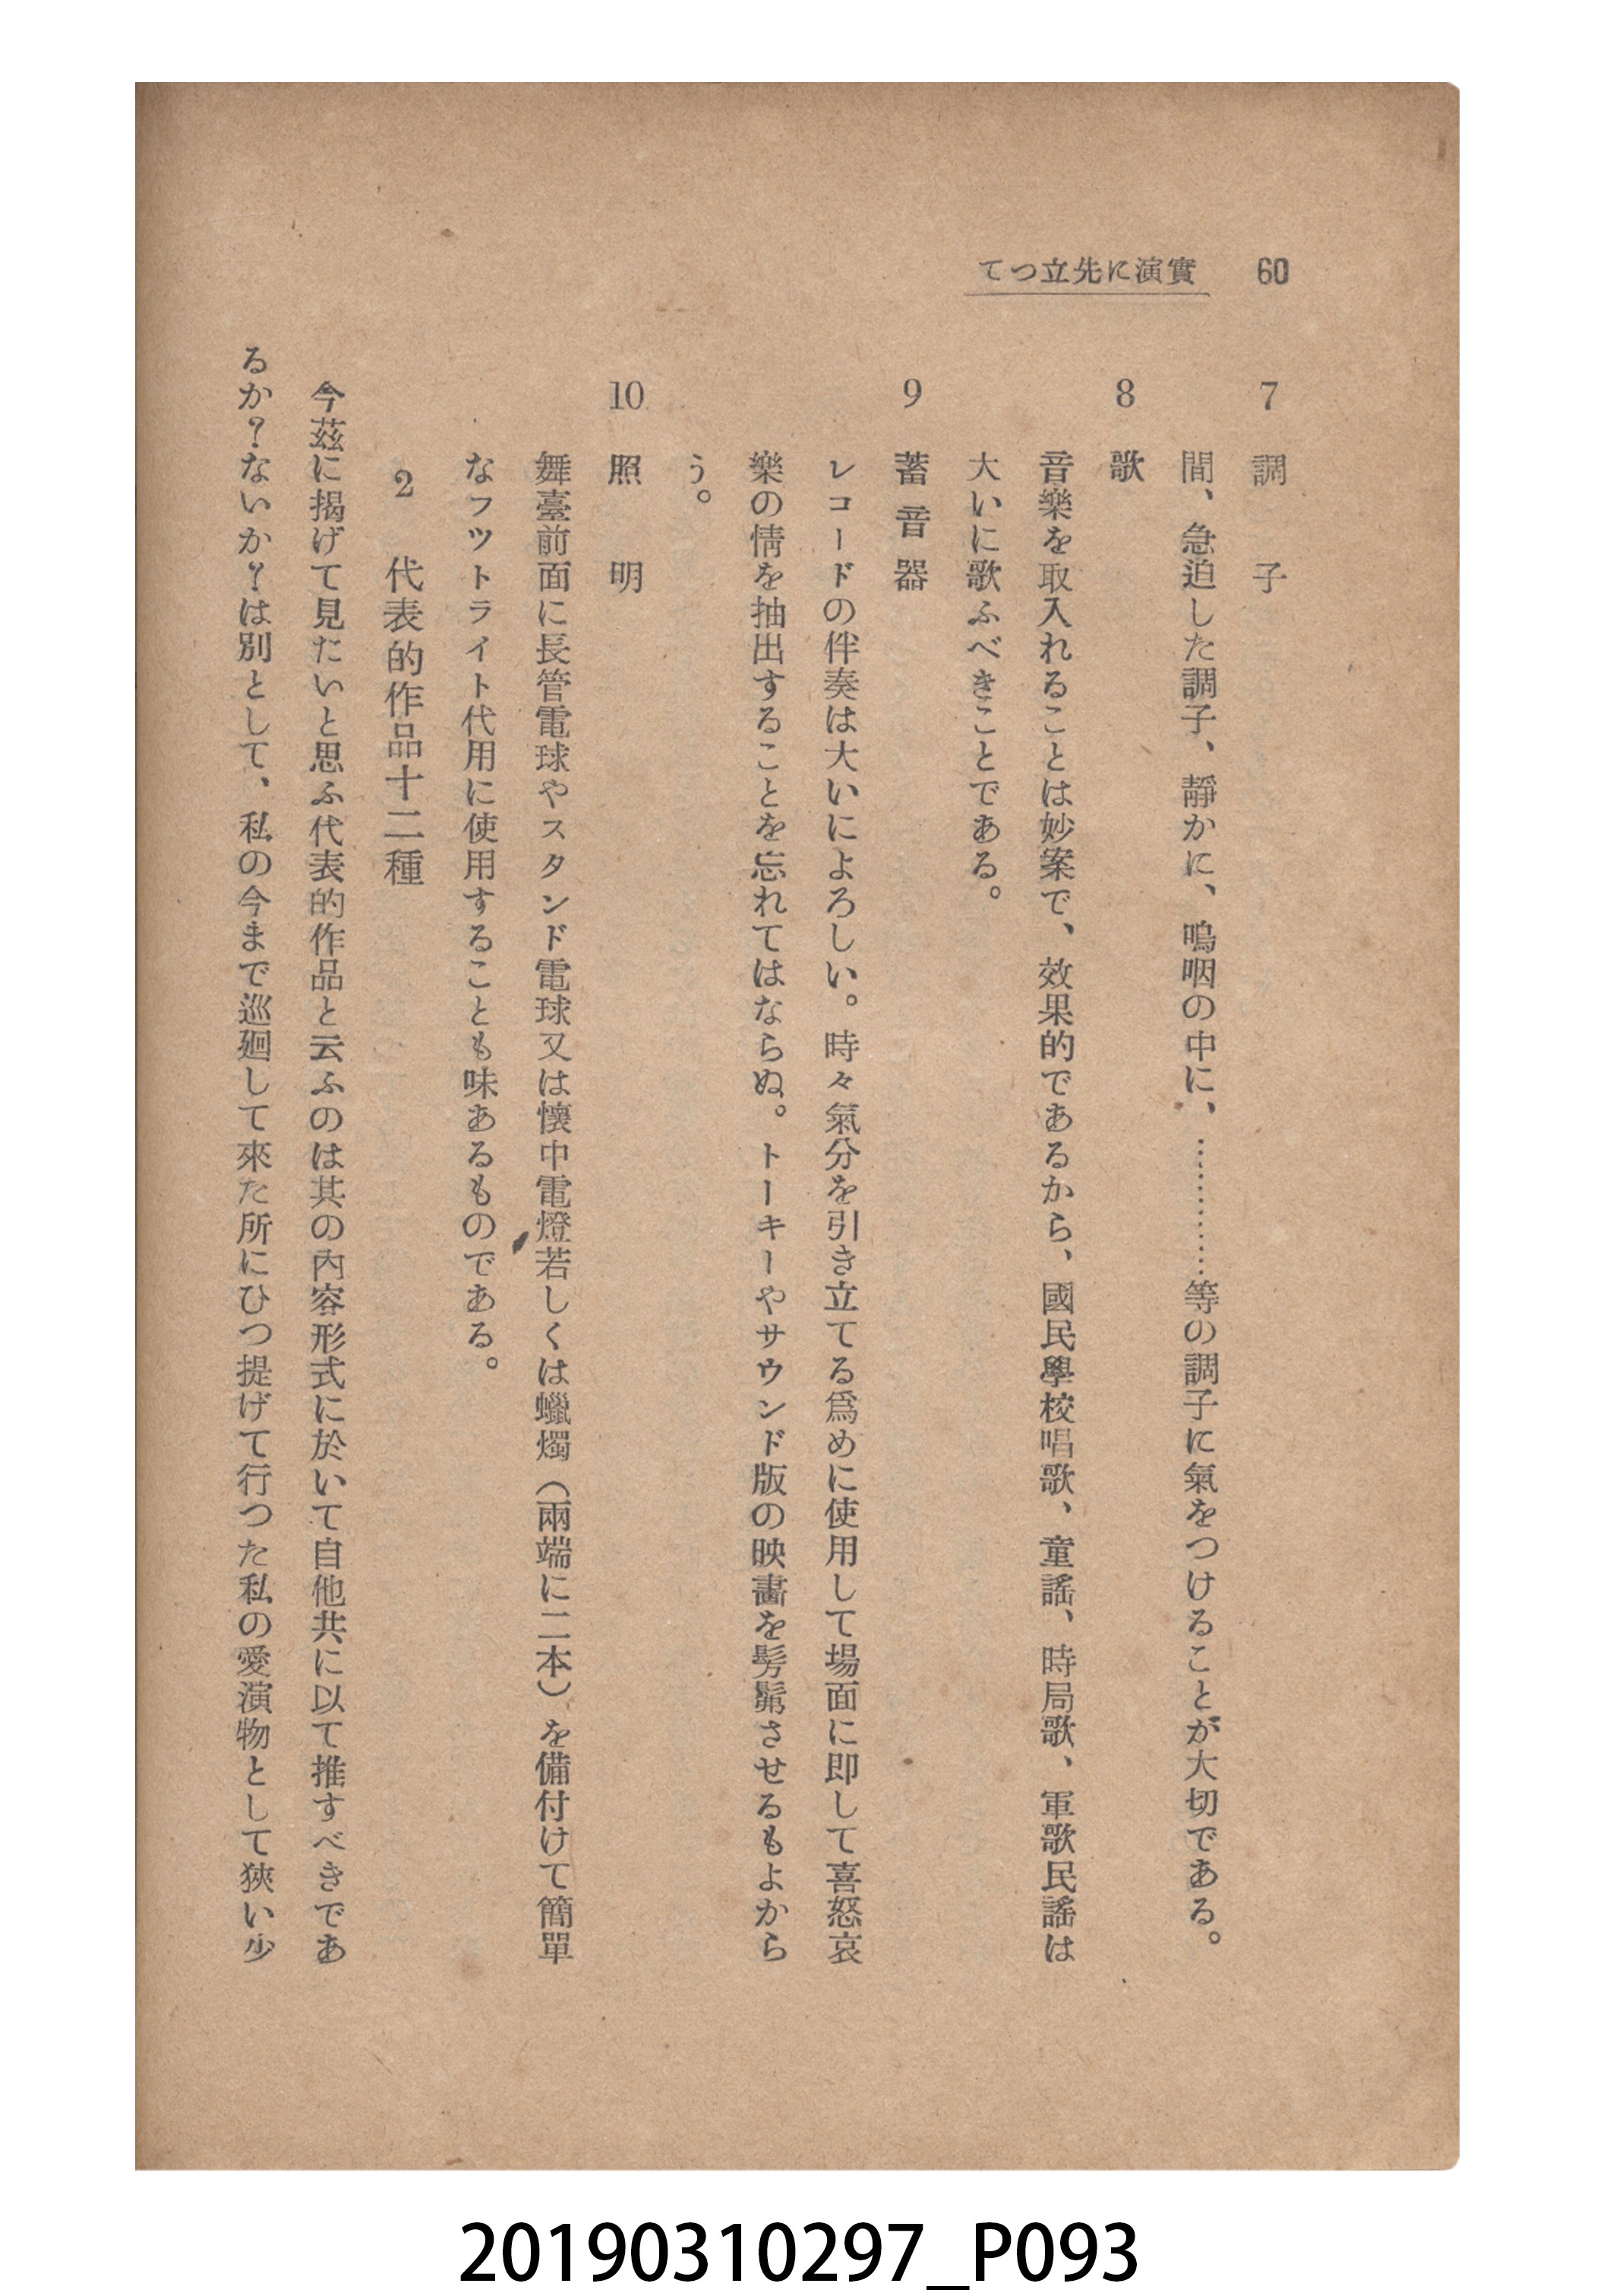 60
てつ立先に演實
7 調子
間、急迫した調子、靜かに、嗚咽の中に、…………等の調子に氣をつけることが大切である。
8 歌
音樂を取入れることは妙案で、效果的であるから、國民學校唱歌、童謠、時局歌、軍歌民謠は
大いに歌ふべきことである。
9 蓄音器
レコードの伴奏は大いによろしい。時々氣分を引き立てる爲めに使用して場面に即して喜怒哀
樂の情を抽出することを忘れてはならぬ。トーキーやサウンド版の映畫を髣髴させるもよから
う。
10 照明
舞臺前面に長管電球やスタンド電球又は懷中電燈若しくは蠟燭(兩端に二本)を備付けて簡單
なフツトライト代用に使用することも味あるものである。
2 代表的作品十二種
今茲に揭げて見たいと思ふ代表的作品と云ふのは其の內容形式に於いて自他共に以て推すべきであ
るか?ないか?は別として、私の今まで巡廻して來た所にひつ提げて行つた私の愛演物として狹い少
20190310297_P093